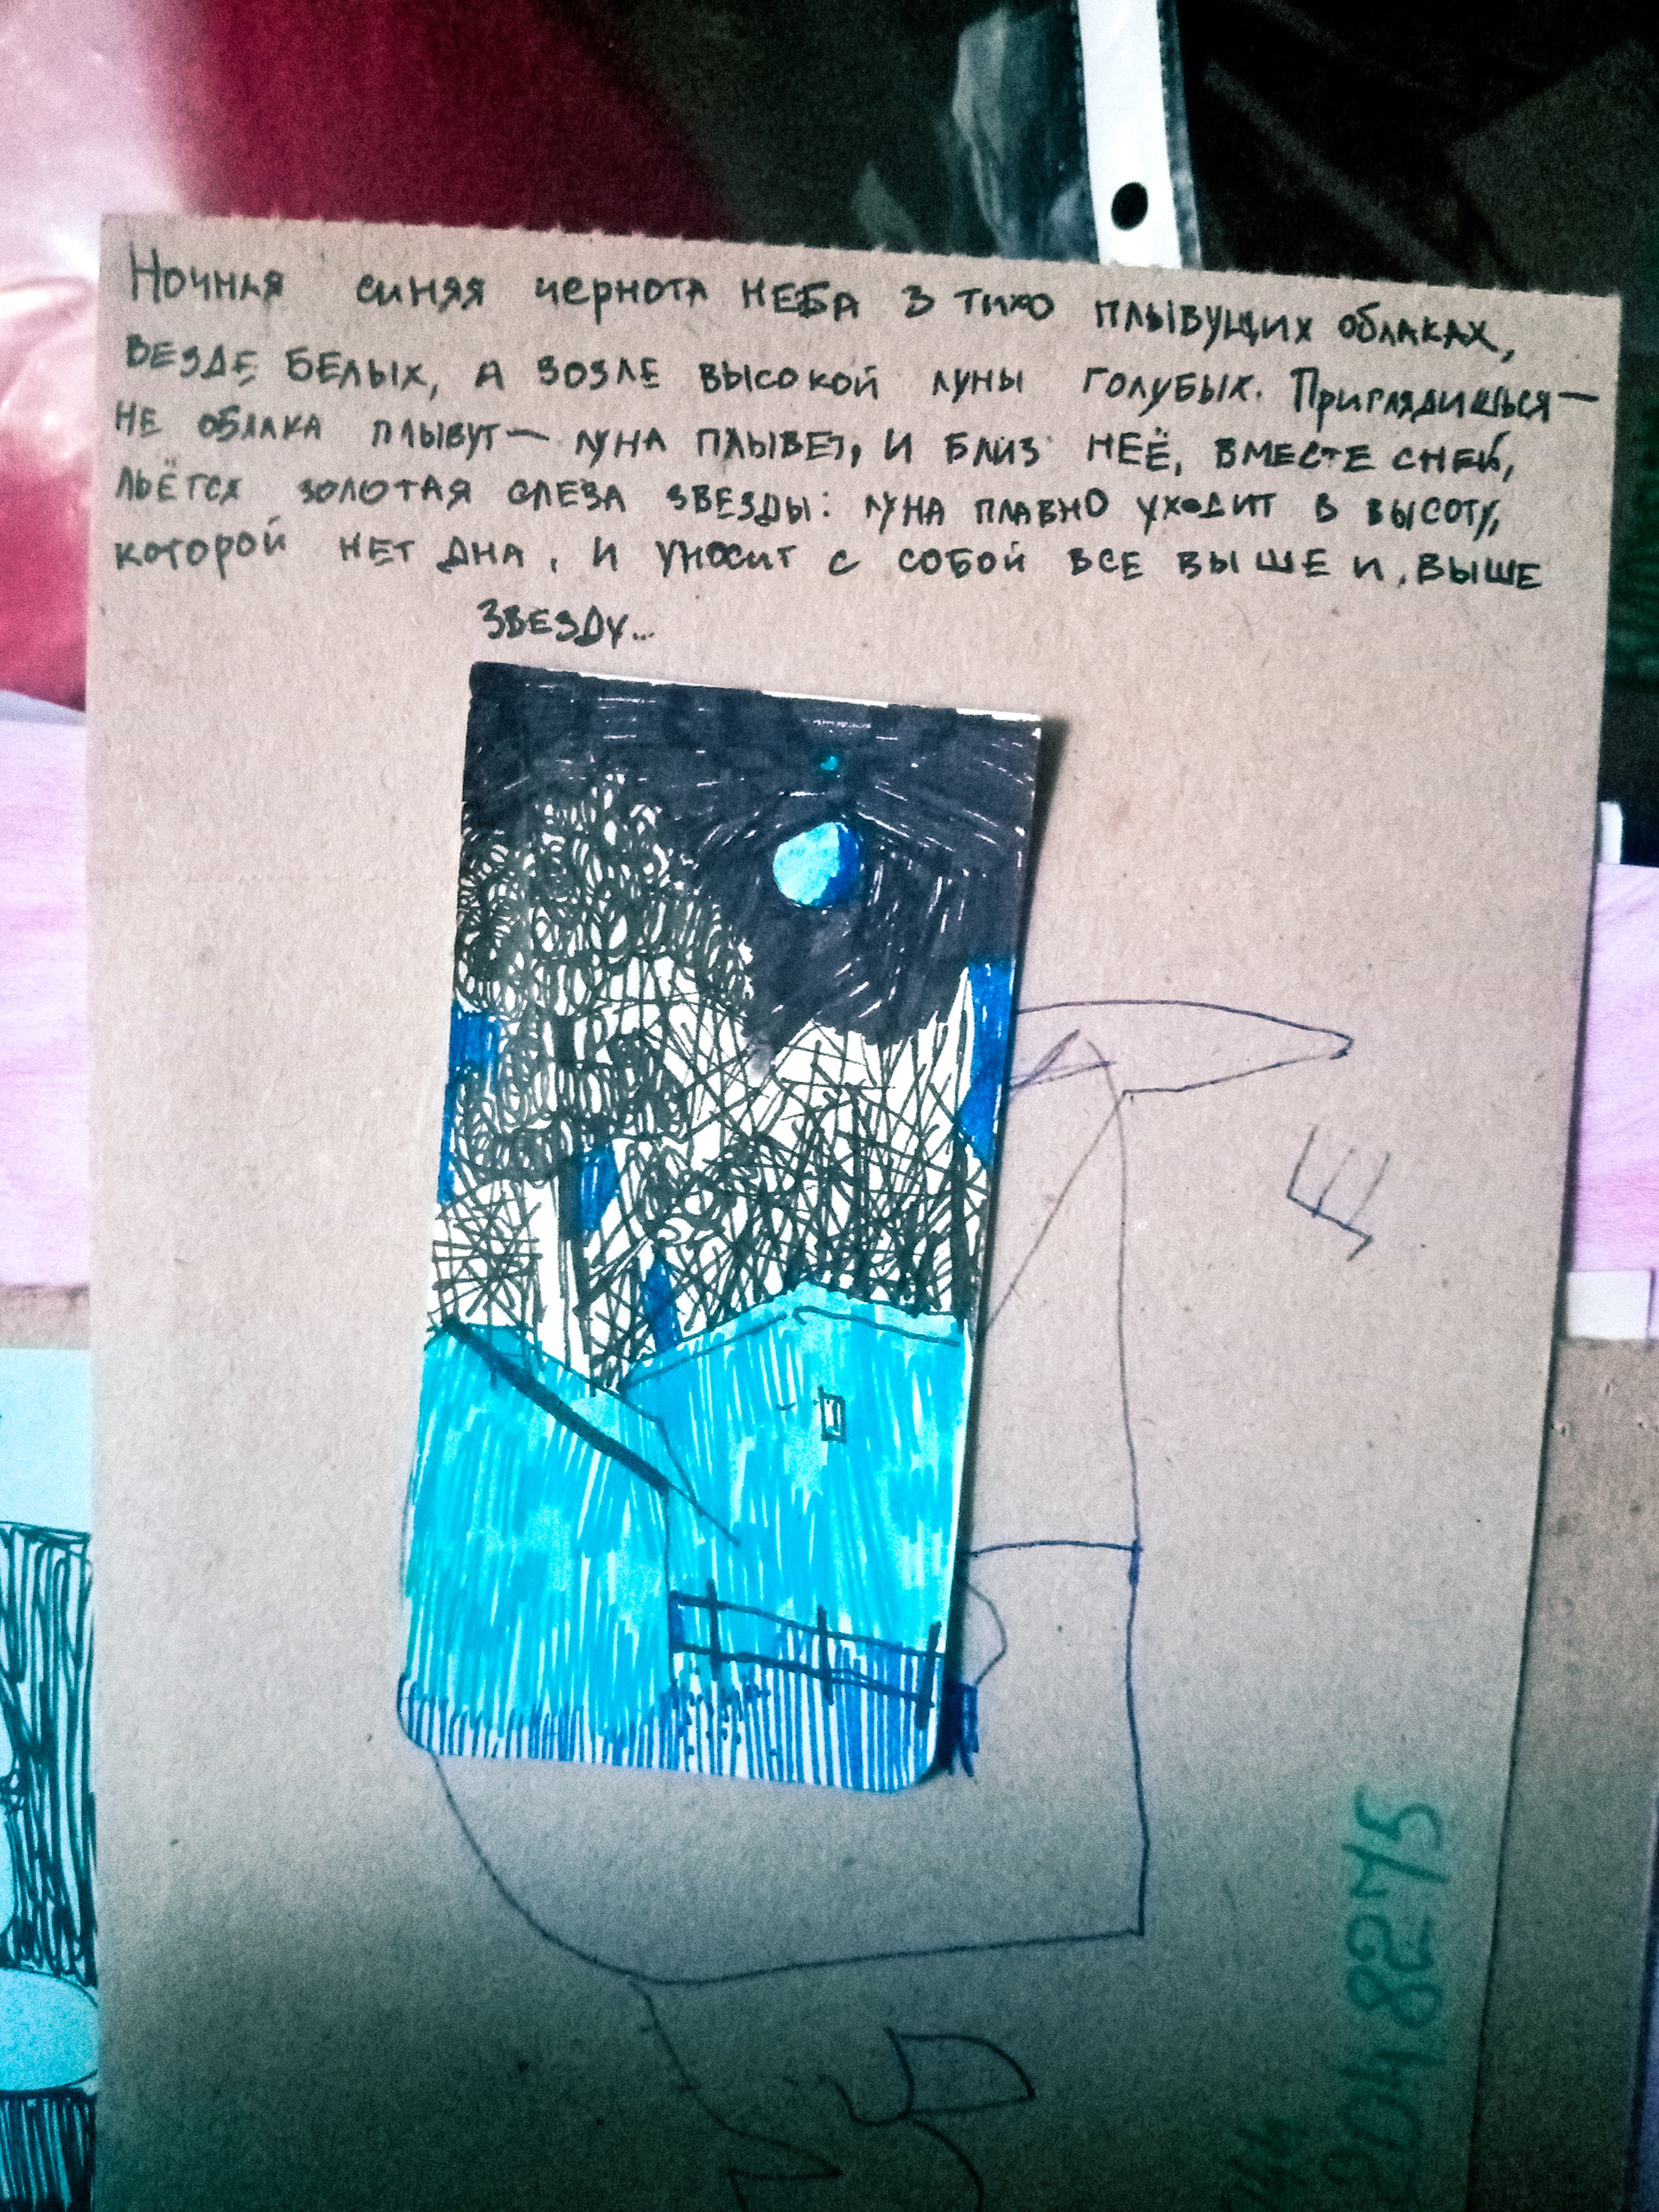 Ночная синяя чернота неба в тихо плывущих облаках,
везде белых, а возле высокой луны голубых. Приглядишься —
не облака плывут — луна плывет, и близ неё, вместе с ней,
льётся золотая слеза звезды: луна плавно уходит в высоту,
которой нет дна, и уносит с собой все выше и, выше
звезду...
Щ
2048275